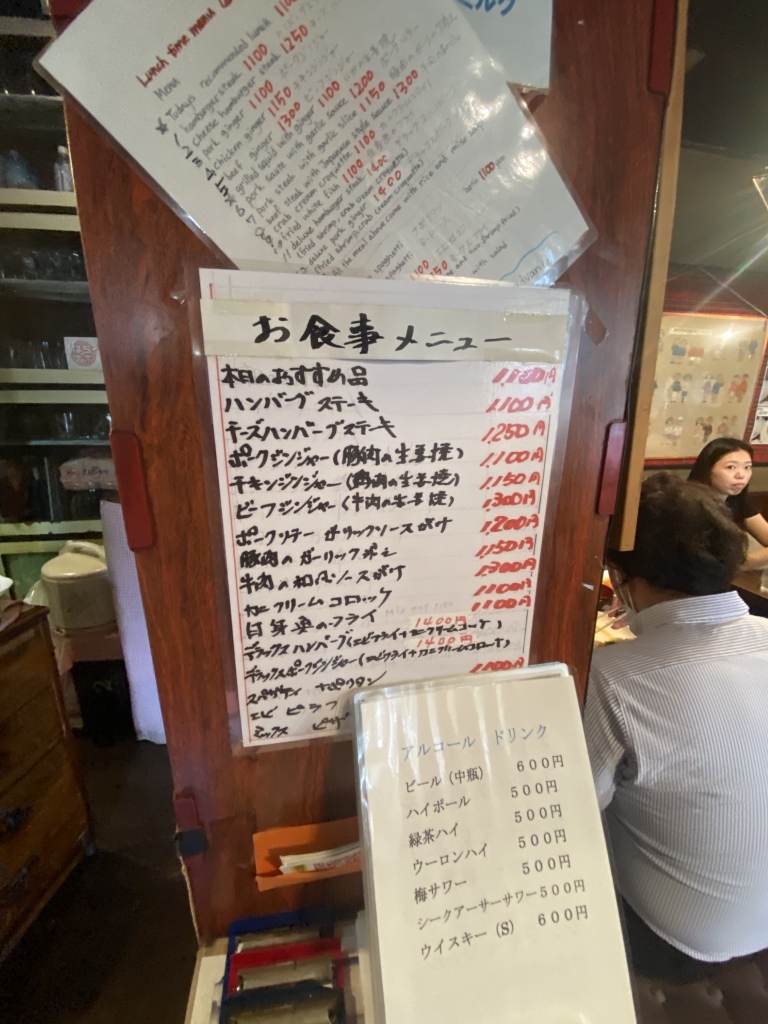 Lunch time menu
Menu 1100
★ Today's recommended lunch 1100
hamburger steak 1100
cheese hamburger steak 1250
pork ginger 1100
chicken ginger 1150
beef ginger 1300
grilled squid with ginger 1100
pork saute with garlic sauce 1200
pork steak with garlic slice 1150
beef steak with Japanese style sauce 1300
crab cream croquette 1100
fried white fish 1100
deluxe hamburger steak 1400
(fried shrimp, crab cream croquette)
deluxe pork ginger 1400
(fried shrimp, crab cream croquette)
the meal above come with rice and miso
spaghetti
お食事メニュー
本日のおすすめ品 1,100円
ハンバーグステーキ 1,100円
チーズハンバーグステーキ 1,250円
ポークジンジャー(豚肉の生姜焼) 1,100円
チキンジンジャー(鶏肉の生姜焼) 1,150円
ビーフジンジャー(牛肉の生姜焼) 1,300円
ポークソテー ガーリックソースがけ 1,200円
豚肉のガーリック 1,150円
牛肉の和風ソースがけ 1,300円
カニクリームコロッケ 1100円
白身魚のフライ 1100円
1400円
デラックスハンバーグ(エビフライ+カニクリームコロッケ)
1400円
デラックスポークジンジャー(エビフライ+カニクリームコロッケ)
スパゲティ ナポリタン
エビ ピラフ
ミックス ピザ
アルコール ドリンク
ビール(中瓶) 600円
ハイボール 500円
緑茶ハイ 500円
ウーロンハイ 500円
梅サワー 500円
シークアーサーサワー500円
ウイスキー(S) 600円